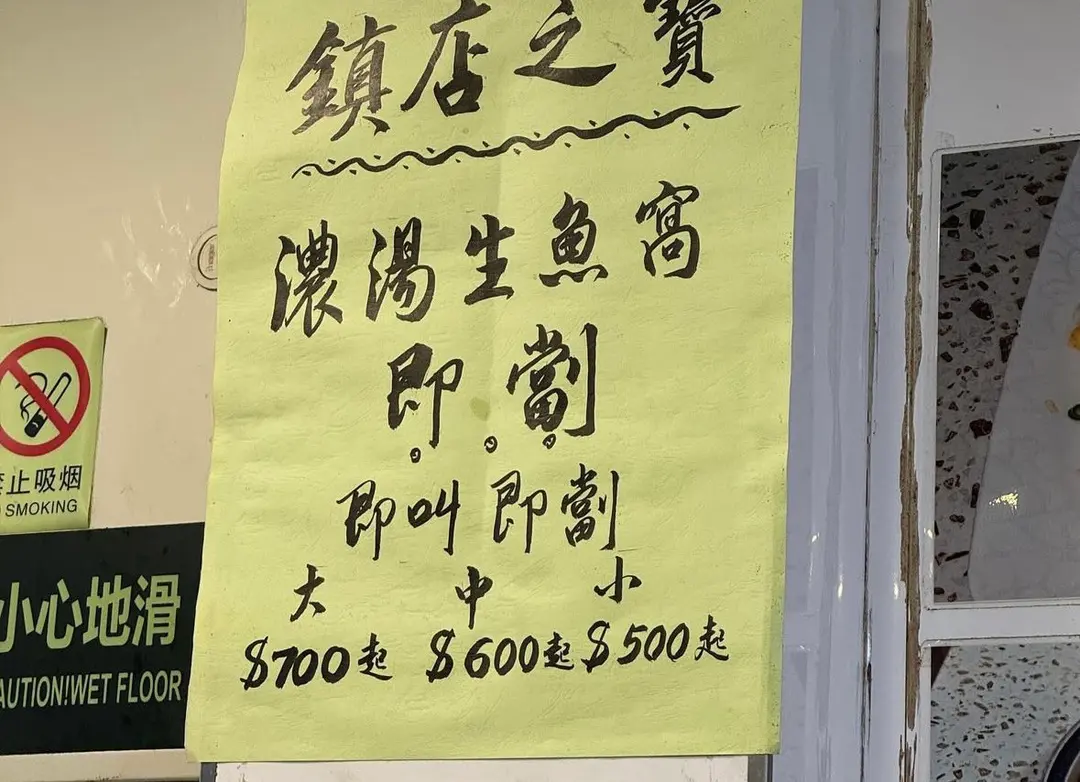 鎮店之寶
濃湯生魚窩
即劏
即叫即劏
大 中 小
$700起 $600起 $500起
禁止吸烟
SMOKING
小心地滑
CAUTION!WET FLOOR